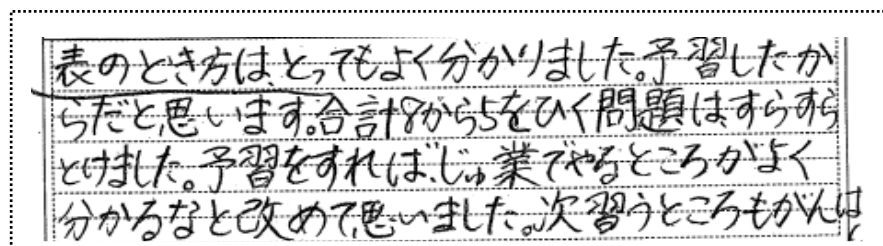 表のとき方は、とってもよく分かりました。予習したか
らだと思います。合計8から5をひく問題は、すらすら
とけました。予習をすれば、じゅ業でやるところがよく
分かるなと改めて思いました。次習うところもがんば